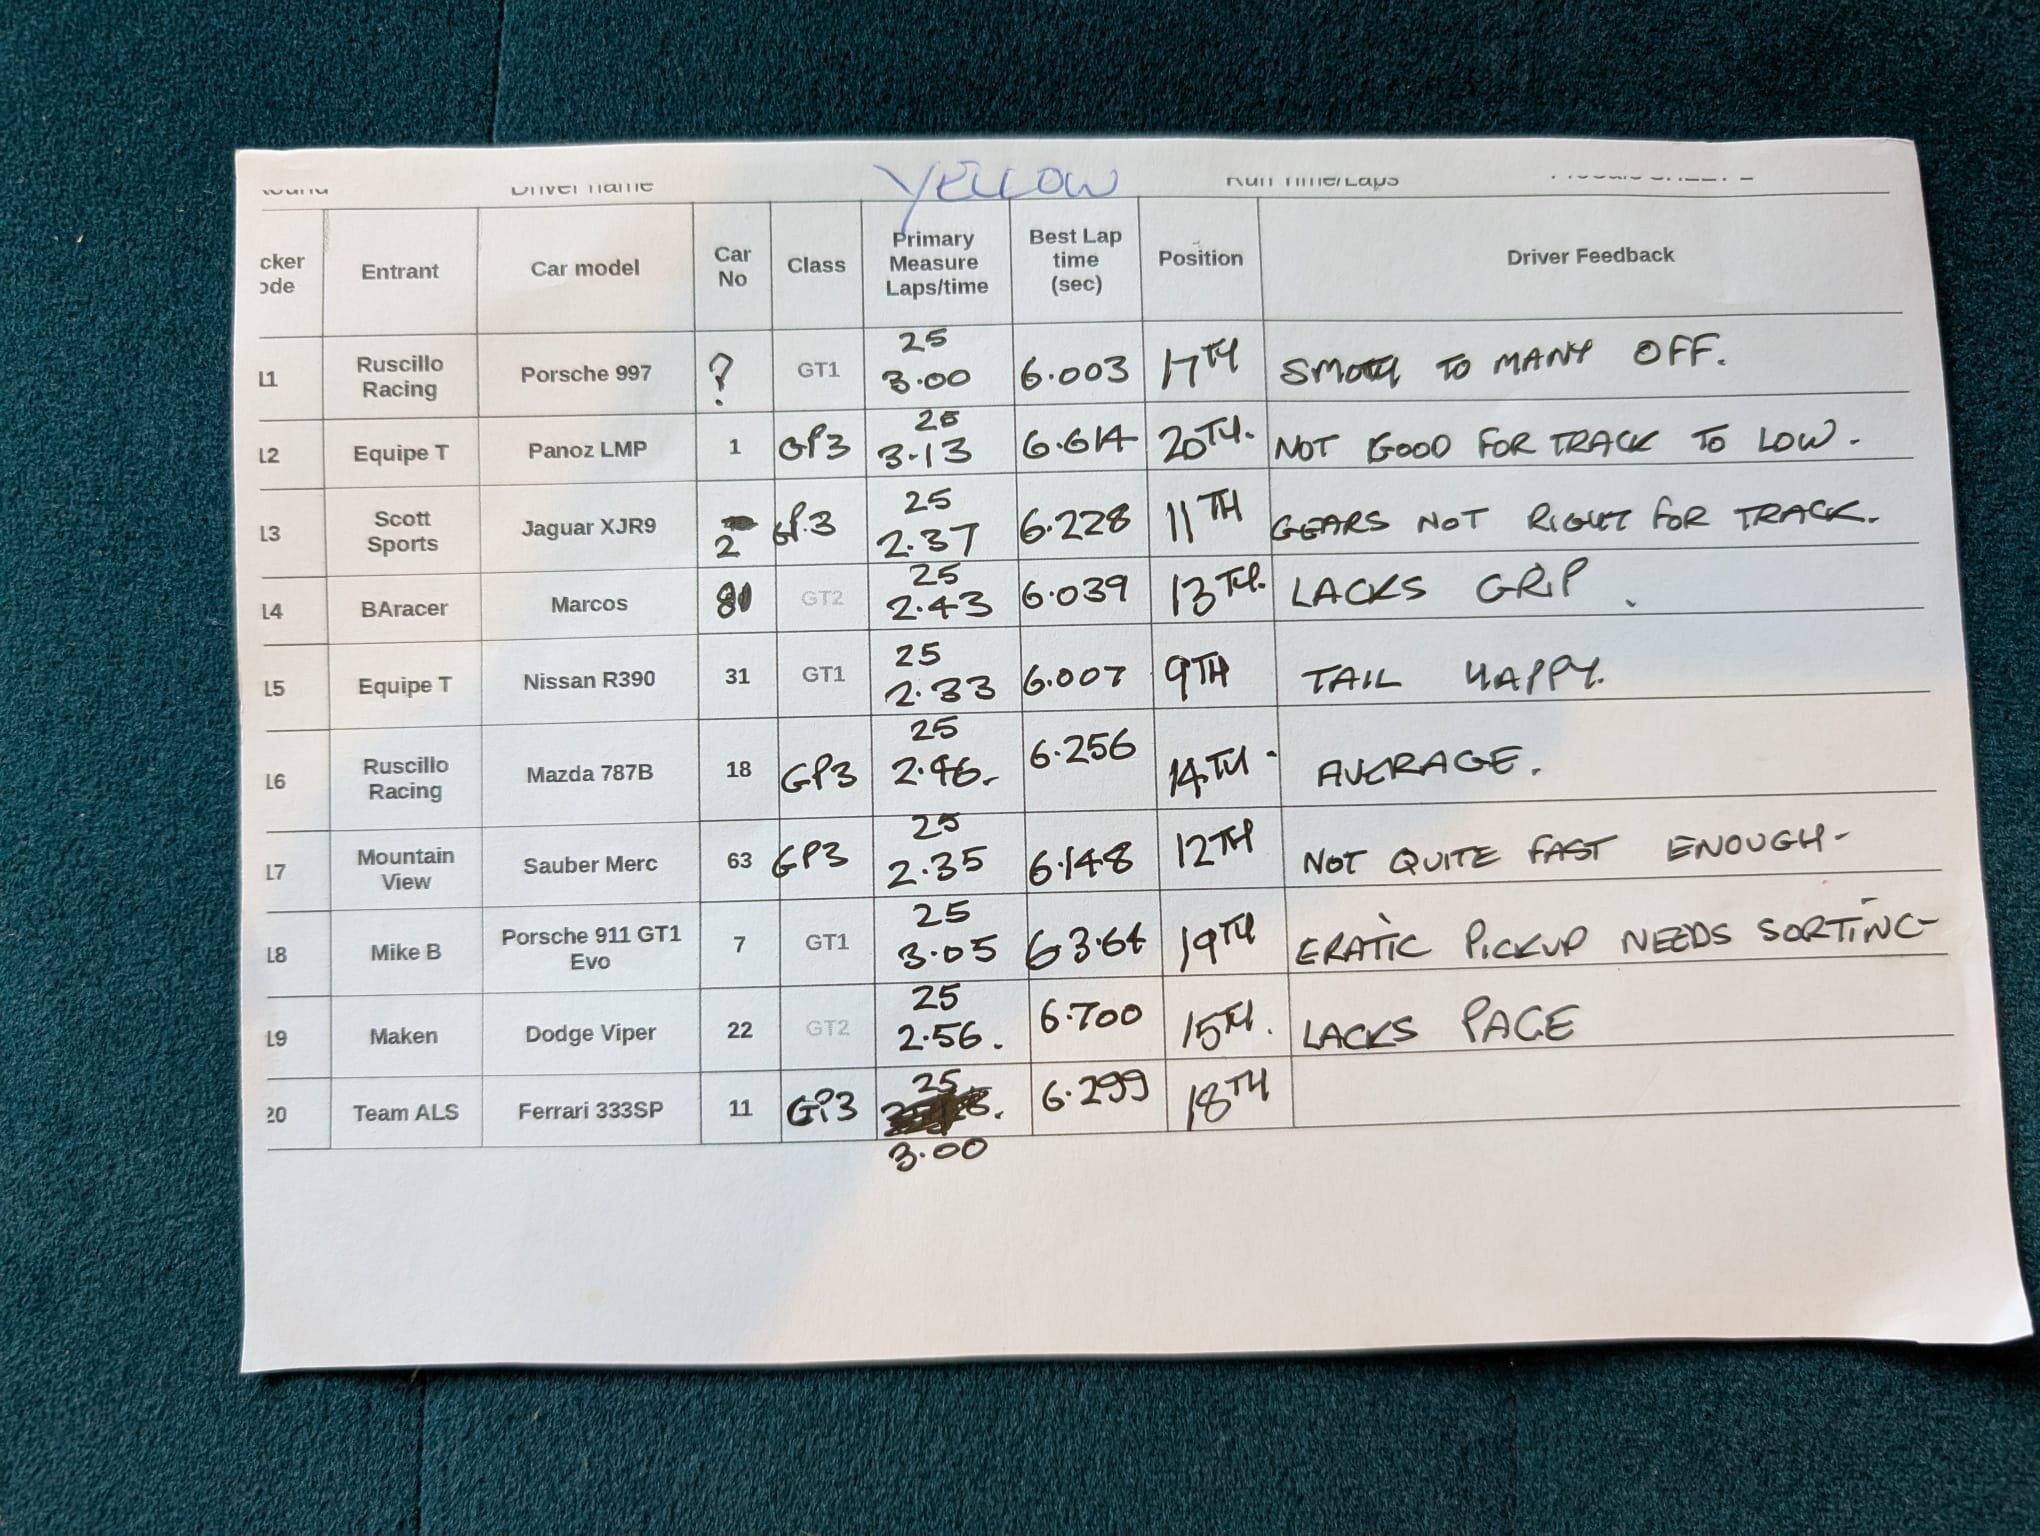 YELLOW
Driver name Run Time/Laps
cker ode Entrant Car model Car No Class Primary Measure Laps/time Best Lap time (sec) Position Driver Feedback
L1 Ruscillo Racing Porsche 997 ? GT1 25 3.00 6.003 17TH SMOTH TO MANY OFF.
L2 Equipe T Panoz LMP 1 GP3 25 3.13 6.614 20TH. NOT GOOD FOR TRACK TO LOW.
L3 Scott Sports Jaguar XJR9 2 GP.3 25 2.37 6.228 11TH GEARS NOT RIGHT FOR TRACK.
L4 BAracer Marcos GT2 25 2.43 6.039 13TH. LACKS GRIP.
L5 Equipe T Nissan R390 31 GT1 25 2.33 6.007 9TH TAIL HAPPY.
L6 Ruscillo Racing Mazda 787B 18 GP3 25 2.46. 6.256 14TH. AVERAGE.
L7 Mountain View Sauber Merc 63 GP3 25 2.35 6.148 12TH NOT QUITE FAST ENOUGH-
L8 Mike B Porsche 911 GT1 Evo 7 GT1 25 3.05 6.364 19TH ERATIC PICKUP NEEDS SORTING
L9 Maken Dodge Viper 22 GT2 25 2.56. 6.700 15TH. LACKS PACE
20 Team ALS Ferrari 333SP 11 GP3 25 3.00 6.299 18TH